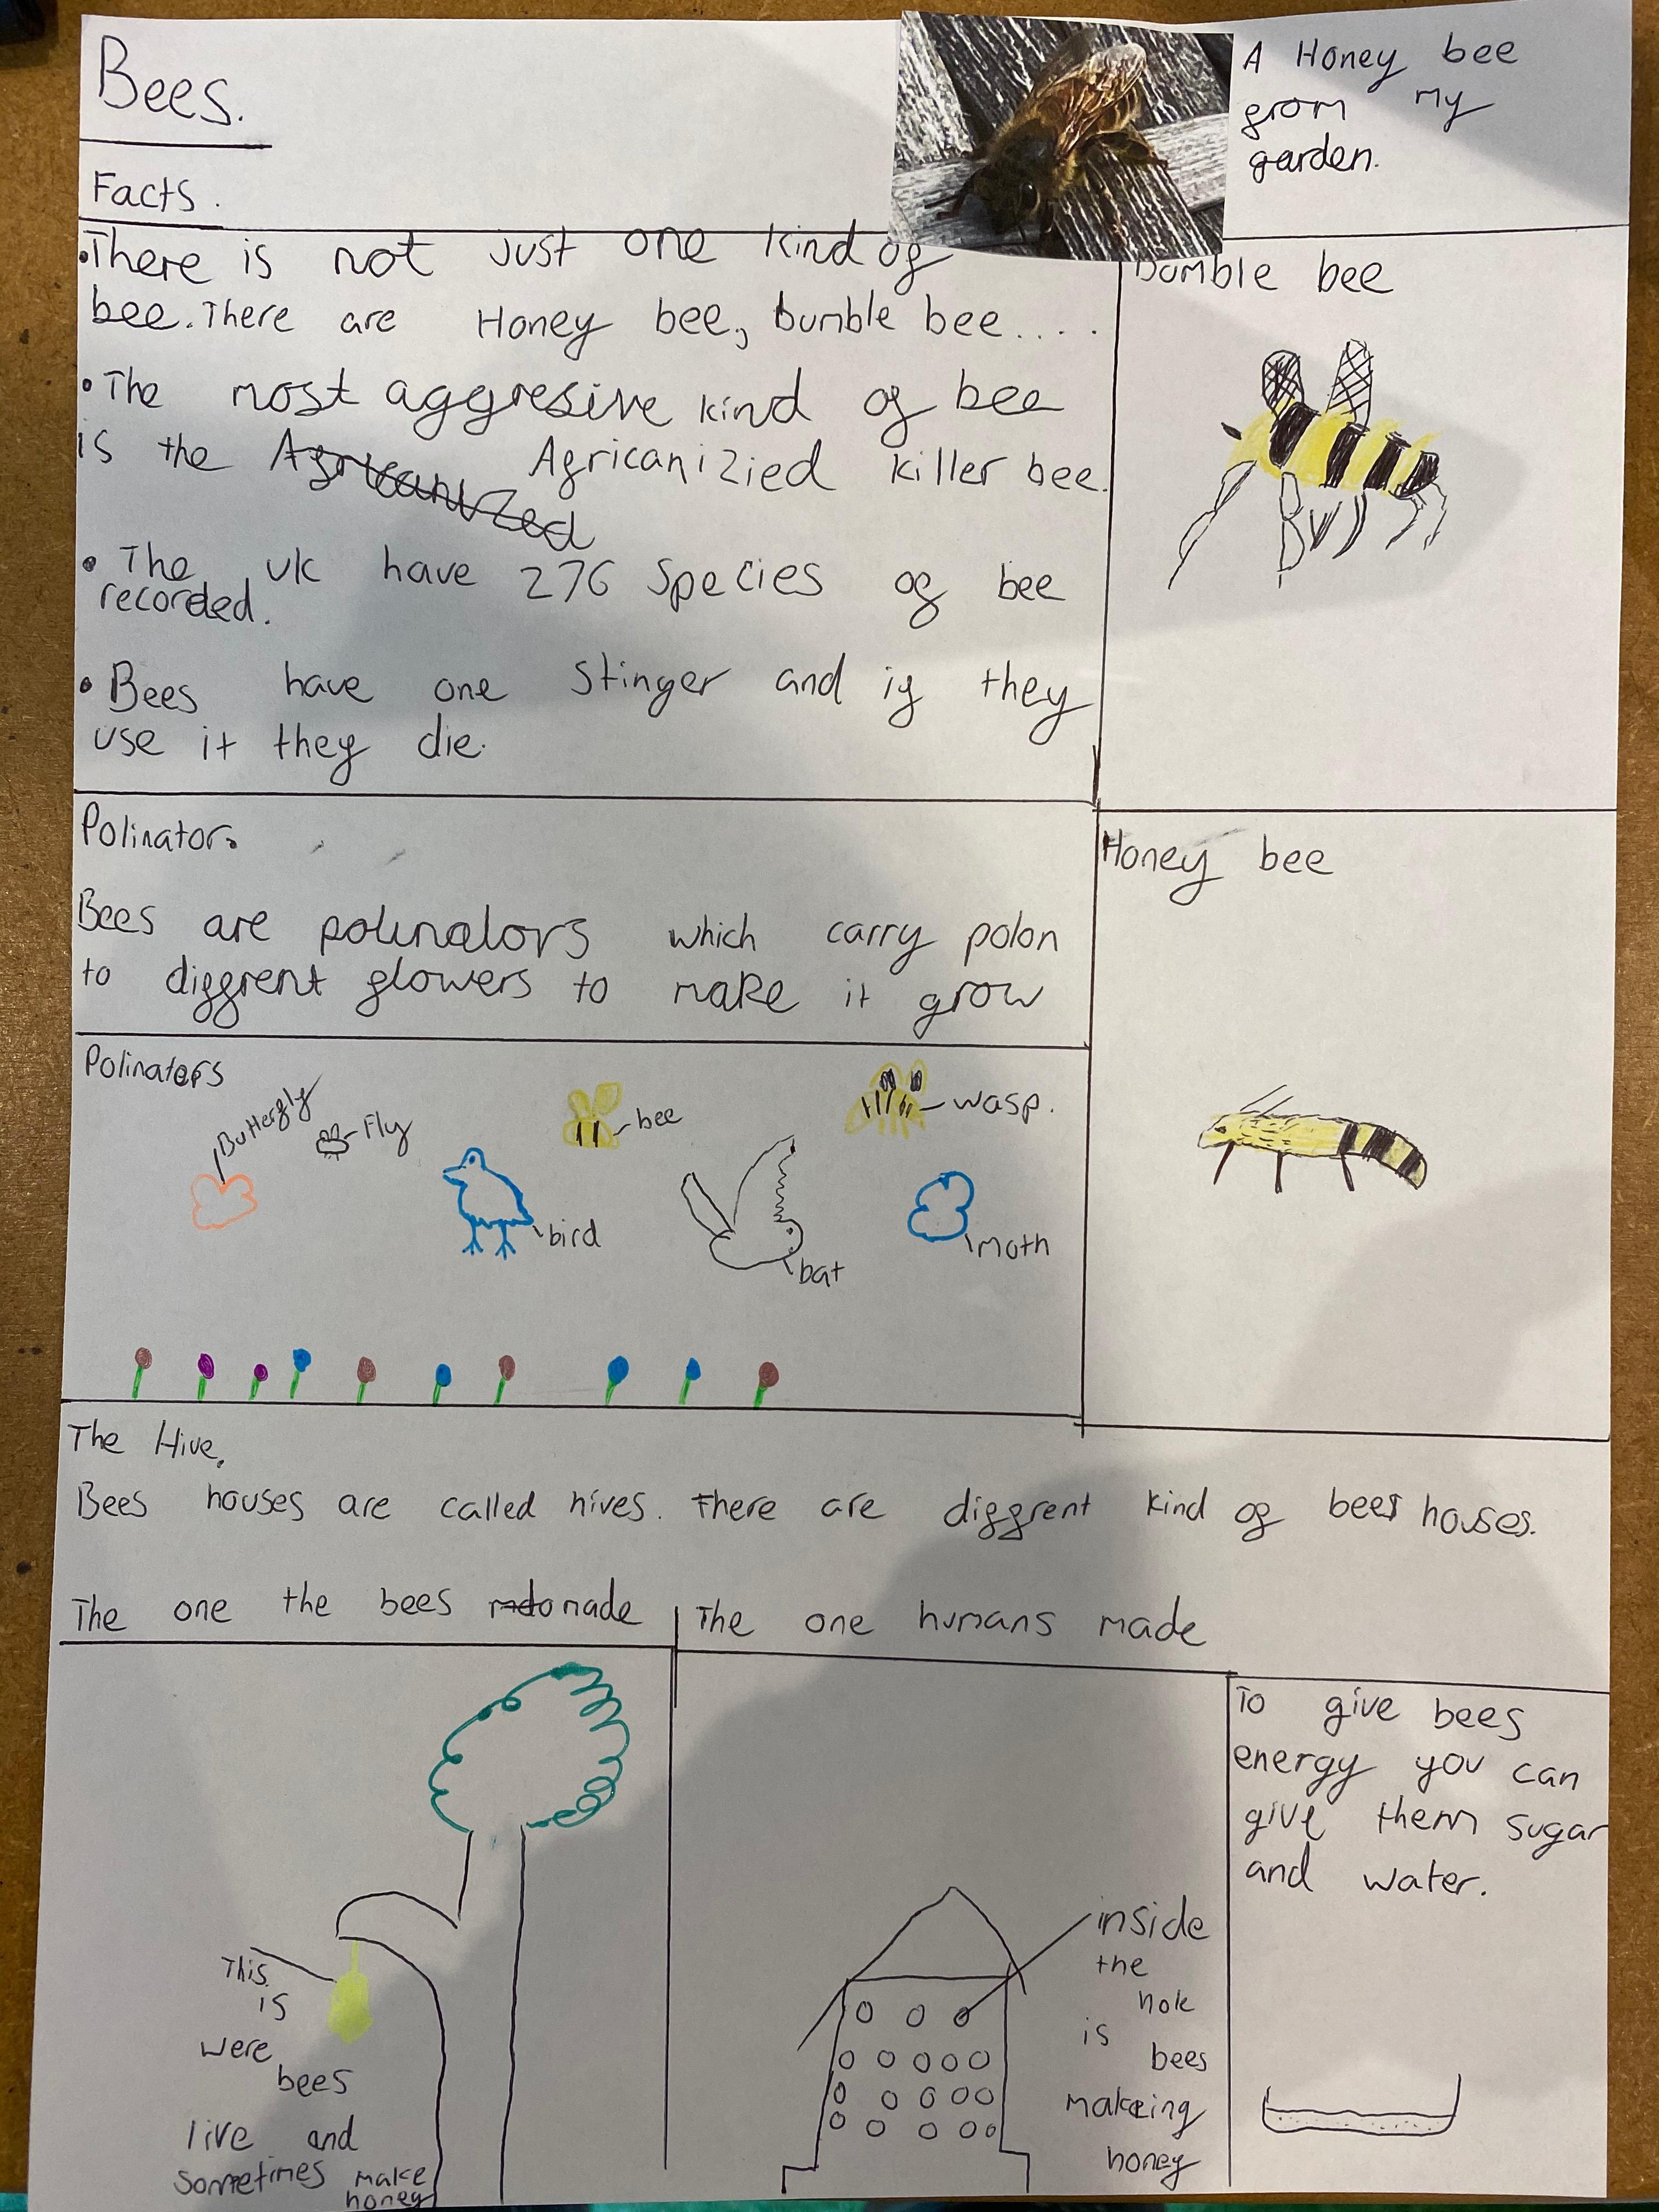 Bees.
A Honey bee
from my
garden.
Facts.
•There is not just one kind of
bee. There are Honey bee, bumble bee....
•The most aggresive kind of bee
is the Africanized Africanizied killer bee.
• The uk have 276 species of bee
recorded.
• Bees have one stinger and if they
use it they die.
bumble bee
Polinator.
Bees are polinators which carry polon
to diffrent flowers to make it grow
Honey bee
Polinators
Butterfly
Fly
bee
wasp.
bird
bat
moth
The Hive.
Bees houses are called hives. There are diffrent kind of bees houses.
The one the bees made
The one humans made
This
is
were
bees
live and
sometimes make
honey
inside
the
hole
is
bees
makeing
honey
To give bees
energy you can
give them sugar
and water.